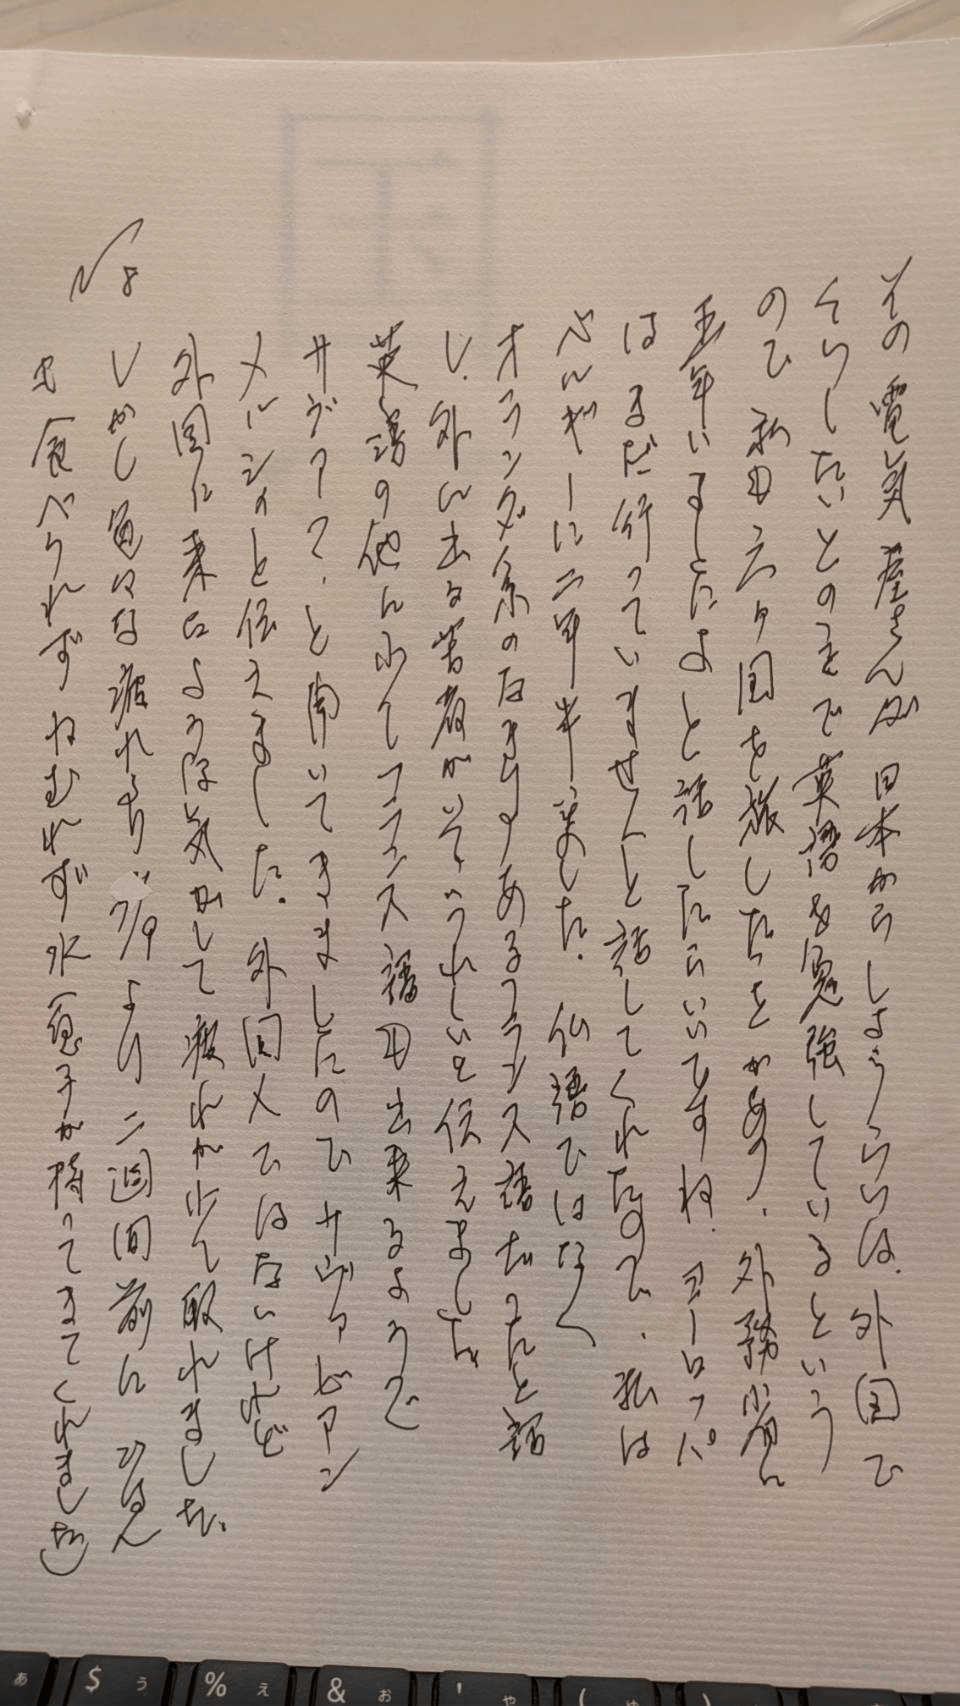 その電気屋さんが日本からしょうらいは、外国で
くらしたいとの事で英語を勉強しているという
ので 私も六ヶ国を旅したことがあり、外務省に
五年いましたよと話したらいいですね、ヨーロッパ
はまだ行っていませんと話してくれたので、私は
ベルギーに二年半 した。仏語ではなく
オランダ系のなまりのあるフランス語だったと話
し、外に出る若者がいてうれしいと伝えましたが
英語の他に少しフランス語も出来るようで
サヴァ?、と聞いてきましたので サヴァビアン
メルシィと伝えました。外国人ではないけれど
外国に来たような気がして疲れが少し取れました。
しかし色々な疲れあり 7/9より二週間前に ごはん
も食べられずねむれず水 恵子が持ってきてくれました)
N8
$ う % え & お ' や ( ゆ )
あ